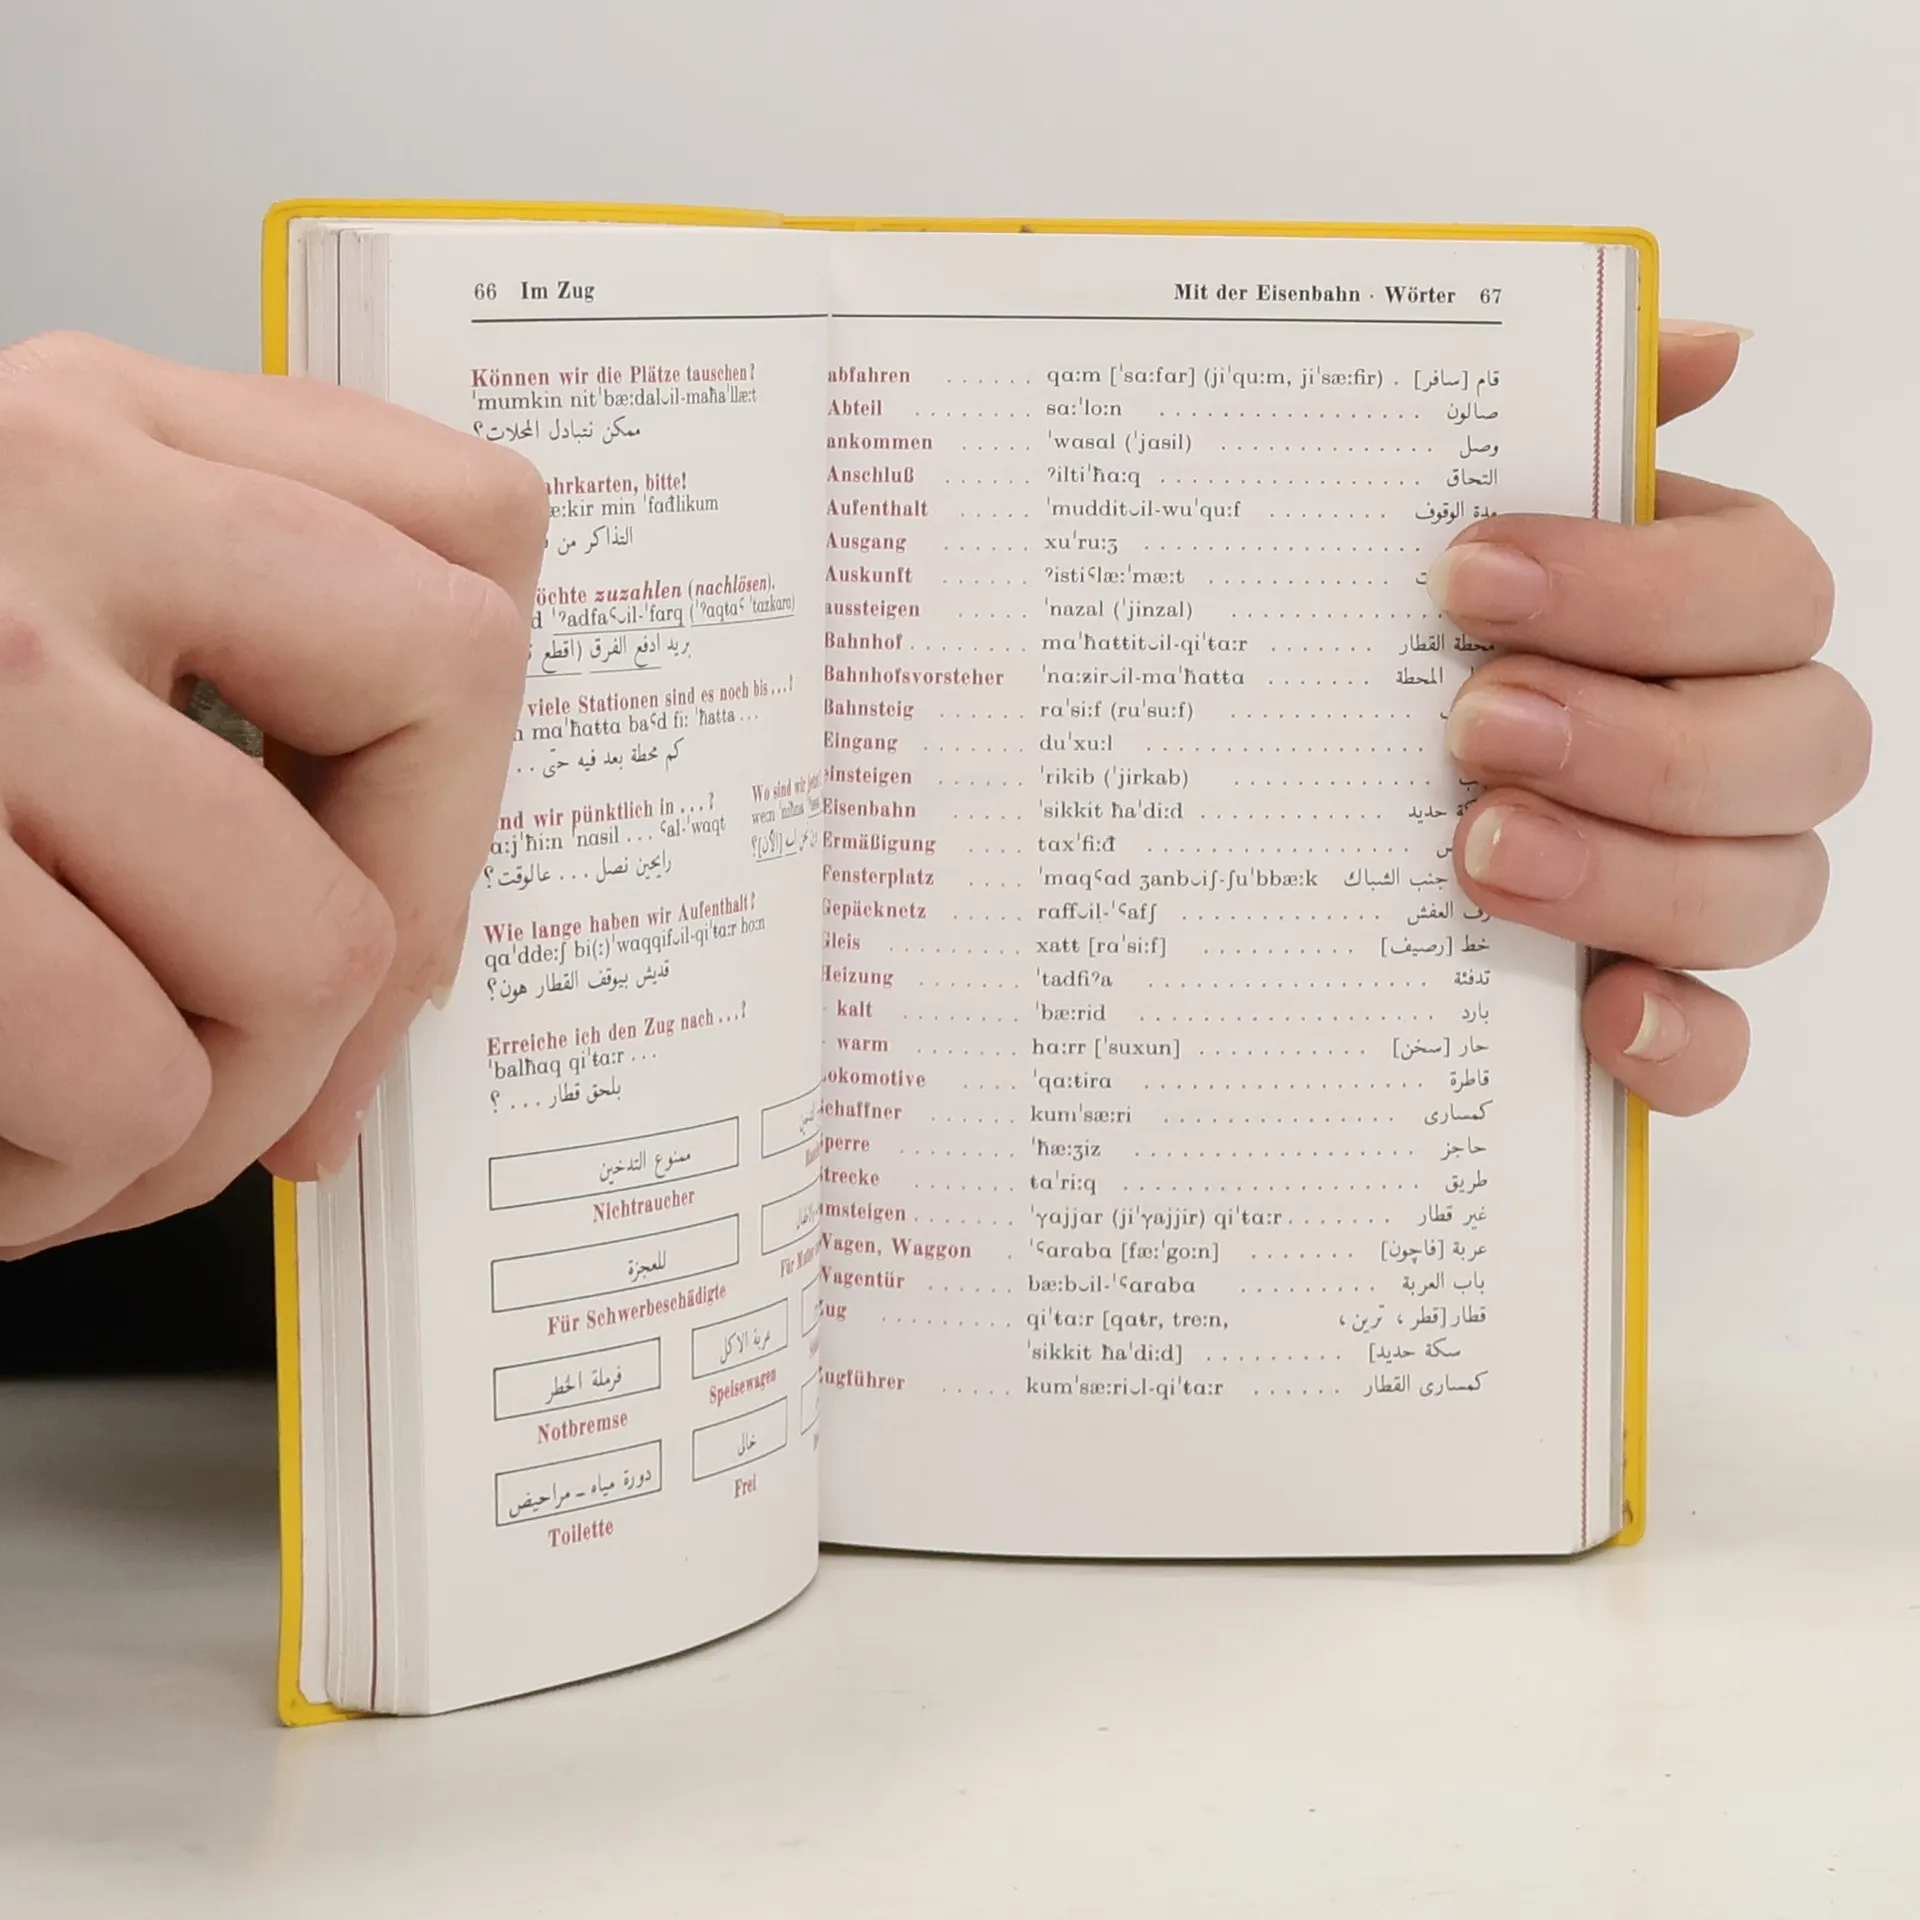 66 Im Zug
Können wir die Plätze tauschen?
ˈmumkin nitˈbæːdal‿il-maħaˈllæːt
ممكن نتبادل المحلات؟
bitte!
min ˈfađlikum
التذاكر من
zuzahlen (nachlösen).
ˈʔadfaʕ‿il-ˈfarq (ˈʔaqtaʕ ˈtazkara)
بريد ادفع الفرق (اقطع
viele Stationen sind es noch bis...?
maˈħatta baʕd fiː ˈħatta ...
كم محطة بعد فيه حتى ..
wir pünktlich in ...?
ˈnasil ... ʕal-ˈwaqt
رايحين نصل ... عالوقت؟
Wo sind wir
Wie lange haben wir Aufenthalt?
qaˈddeːʃ bi(ː)ˈwaqqif‿il-qiˈtɑːr hoːn
قديش بيوقف القطار هون؟
Erreiche ich den Zug nach ...?
ˈbalħaq qiˈtɑːr ...
بلحق قطار ... ؟
ممنوع التدخين
Nichtraucher
للعجزة
Für Schwerbeschädigte
Für
فرملة الخطر
Notbremse
عربة الاكل
Speisewagen
دورة مياه - مراحيض
Toilette
خالى
Frei
Mit der Eisenbahn · Wörter 67
abfahren ...... qɑːm [ˈsɑːfar] (jiˈquːm, jiˈsæːfir) . قام [سافر]
Abteil ........ sɑːˈloːn ................ صالون
ankommen ..... ˈwasal (ˈjasil) ............. وصل
Anschluß ...... ʔiltiˈħɑːq ................ التحاق
Aufenthalt ..... ˈmuddit‿il-wuˈquːf ........ مدة الوقوف
Ausgang ...... xuˈruːʒ .................
Auskunft ...... ʔistiʕlæːˈmæːt .............
aussteigen ..... ˈnazal (ˈjinzal) ............
Bahnhof ........ maˈħattit‿il-qiˈtɑːr ....... محطة القطار
Bahnhofsvorsteher ˈnɑːzir‿il-maˈħatta ....... المحطة
Bahnsteig ...... rɑˈsiːf (ruˈsuːf) ............
Eingang ....... duˈxuːl .................
einsteigen ..... ˈrikib (ˈjirkab) .............
Eisenbahn ..... ˈsikkit ħaˈdiːd ............ حديد
Ermäßigung .... taxˈfiːđ ................
Fensterplatz .... ˈmaqʕad ʒanb‿iʃ-ʃuˈbbæːk جنب الشباك
Gepäcknetz ..... raff‿il-ˈʕafʃ ............ رف العفش
Gleis ........ xatt [rɑˈsiːf] .......... خط [رصيف]
Heizung ....... ˈtadfiʔa ................. تدفئة
kalt ........ ˈbæːrid .................. بارد
warm ....... hɑːrr [ˈsuxun] ........... حار [سخن]
Lokomotive .... ˈqɑːtira ................. قاطرة
Schaffner ...... kumˈsæːri .............. كمسارى
Sperre ........ ˈħæːʒiz ................. حاجز
Strecke ....... tɑˈriːq .................. طريق
Umsteigen ....... ˈɣajjar (jiˈɣajjir) qiˈtɑːr ....... غير قطار
Wagen, Waggon . ˈʕaraba [fæːˈgoːn] ....... عربة [فاچون]
Wagentür ...... bæːb‿il-ˈʕaraba ......... باب العربة
Zug ......... qiˈtɑːr [qatr, treːn, قطار [قطر ، ترين ،
ˈsikkit ħaˈdiːd] ......... سكة حديد]
Zugführer ..... kumˈsæːri‿l-qiˈtɑːr ...... كمسارى القطار